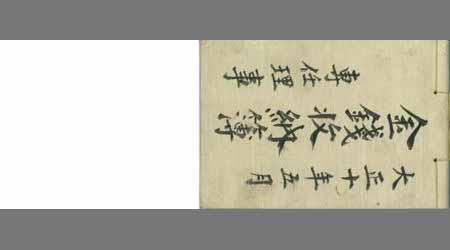 大正十年五月
金錢收納簿
專任理事